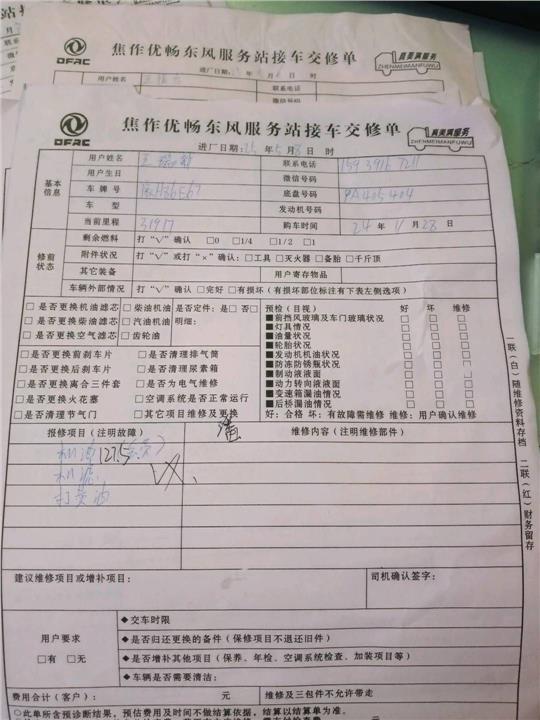 焦作优畅东风服务站接车交修单
真美满服务
ZHENMEIMANFUWU
DFAC
进厂日期: 年 月 日 时
用户姓名
联系电话
微信号码
焦作优畅东风服务站接车交修单
真美满服务
ZHENMEIMANFUWU
DFAC
进厂日期:25 年 5 月 8 日 时
基本信息
用户姓名
联系电话
用户生日
微信号码
车牌号
底盘号码 RA405404
车型
发动机号码
当前里程 31917
购车时间 24 年 11 月 28 日
修前状态
剩余燃料 打“√”确认 □0 □1/4 □1/2 □1
附件状况 打“√”或打“×”确认:□工具 □灭火器 □备胎 □千斤顶
其它装备 用户寄存物品
车辆外部情况 打“√”确认 □完好 □有损坏(有损坏部位标注有下表左侧选项)
□是否更换机油滤芯 □柴油机油 是否定件:□是 □否
□是否更换柴油滤芯 □汽油机油 明细:
□是否更换空气滤芯 □齿轮油
□是否更换前刹车片 □是否清理排气筒
□是否更换后刹车片 □是否清理尿素箱
□是否更换离合三件套 □是否为电气维修
□是否更换火花塞 □空调系统是否正常运行
□是否清理节气门 □其它项目维修及更换
预检(目视) 好 坏 维修
■前挡风玻璃及车门玻璃状况 □ □ □
■灯具情况 □ □ □
■油量状况 □ □ □
■轮胎状况 □ □ □
■发动机机油状况 □ □ □
■防冻防锈瓶状况 □ □ □
■制动液液面 □ □ □
■动力转向液液面 □ □ □
■变速箱漏油情况 □ □ □
■后桥漏油情况 □ □ □
好:合格 坏:有故障需维修 维修:用户确认维修
报修项目(注明故障) 维修内容(注明维修部件)
机油 127.5
机滤
打黄油
一联(白)随维修资料存档 二联(红)财务留存
建议维修项目或增补项目:
司机确认签字:
用户要求
□有 □无
◆交车时限
◆是否归还更换的备件(保修项目不退还旧件)
◆是否增补其他项目(保养、年检、空调系统检查、加装项目等)
◆车辆是否需要清洁:
费用合计(客户): 元 维修及三包件不允许带走
○此单所含预诊断结果,预估费用及时间不做结算依据,结算以结算单为准。